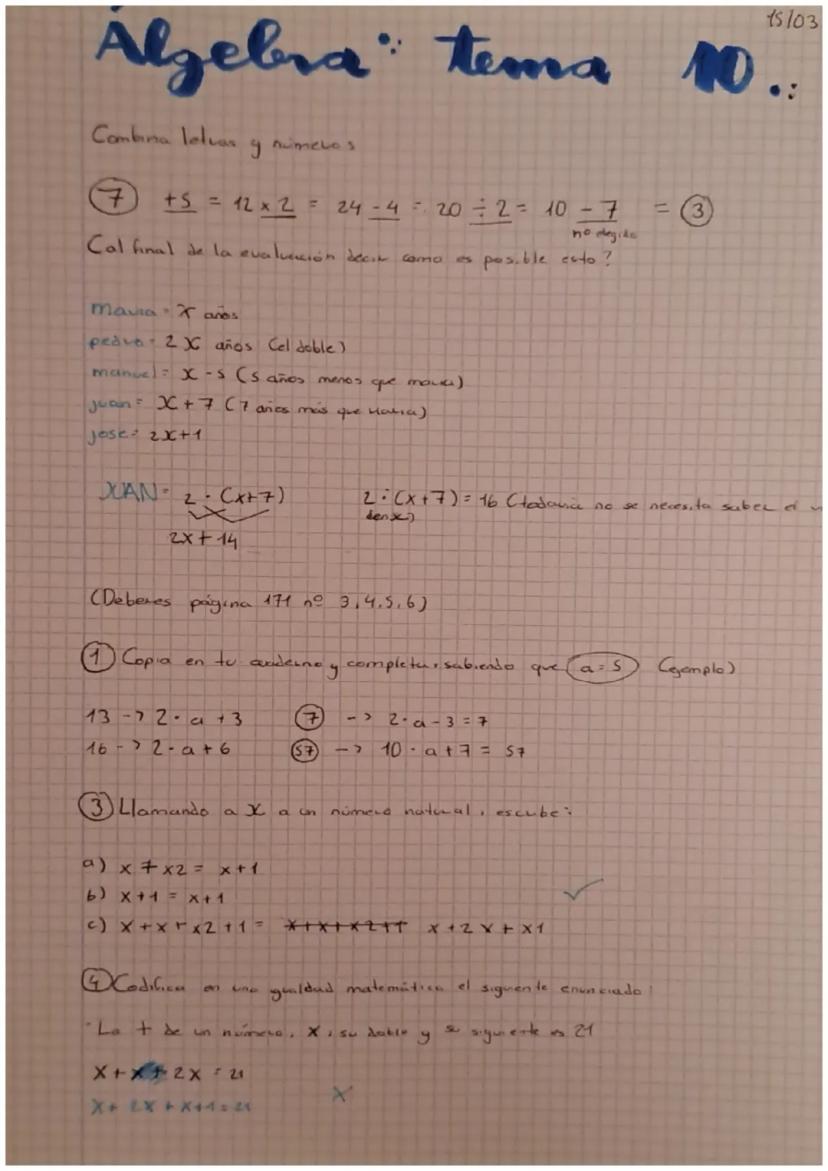 15/03
Álgebra: tema 10.:
Combina letras y números
7 +5 = 12 x 2 = 24 - 4 = 20 ÷ 2 = 10 - 7 = 3
nº elegido
(al final de la evaluación decir como es posible esto?
maria = x años
pedro = 2x años (el doble)
manuel = x - 5 (5 años menos que maria)
juan = x + 7 (7 años más que maria)
jose = 2x+1
JUAN = 2 · (x+7) 2 · (x+7) = 16 (todavía no se necesita saber el
den x)
2x + 14
(Deberes página 171 nº 3,4,5,6)
1 Copia en tu cuaderno y completa, sabiendo que a = 5 (ejemplo)
13 -> 2 · a + 3 7 -> 2 · a - 3 = 7
16 -> 2 · a + 6 57 -> 10 · a + 7 = 57
3 Llamando a x a un número natural, escribe:
a) x + x2 = x+1
b) x+1 = x+1
c) x+x+x2+1 = x+x+x2+1 x+2x+x1
4 Codifica en una igualdad matemática el siguiente enunciado:
"La + de un número, x, su doble y su siguiente es 21
x + x + 2x = 21
x + 2x + x+1 = 21